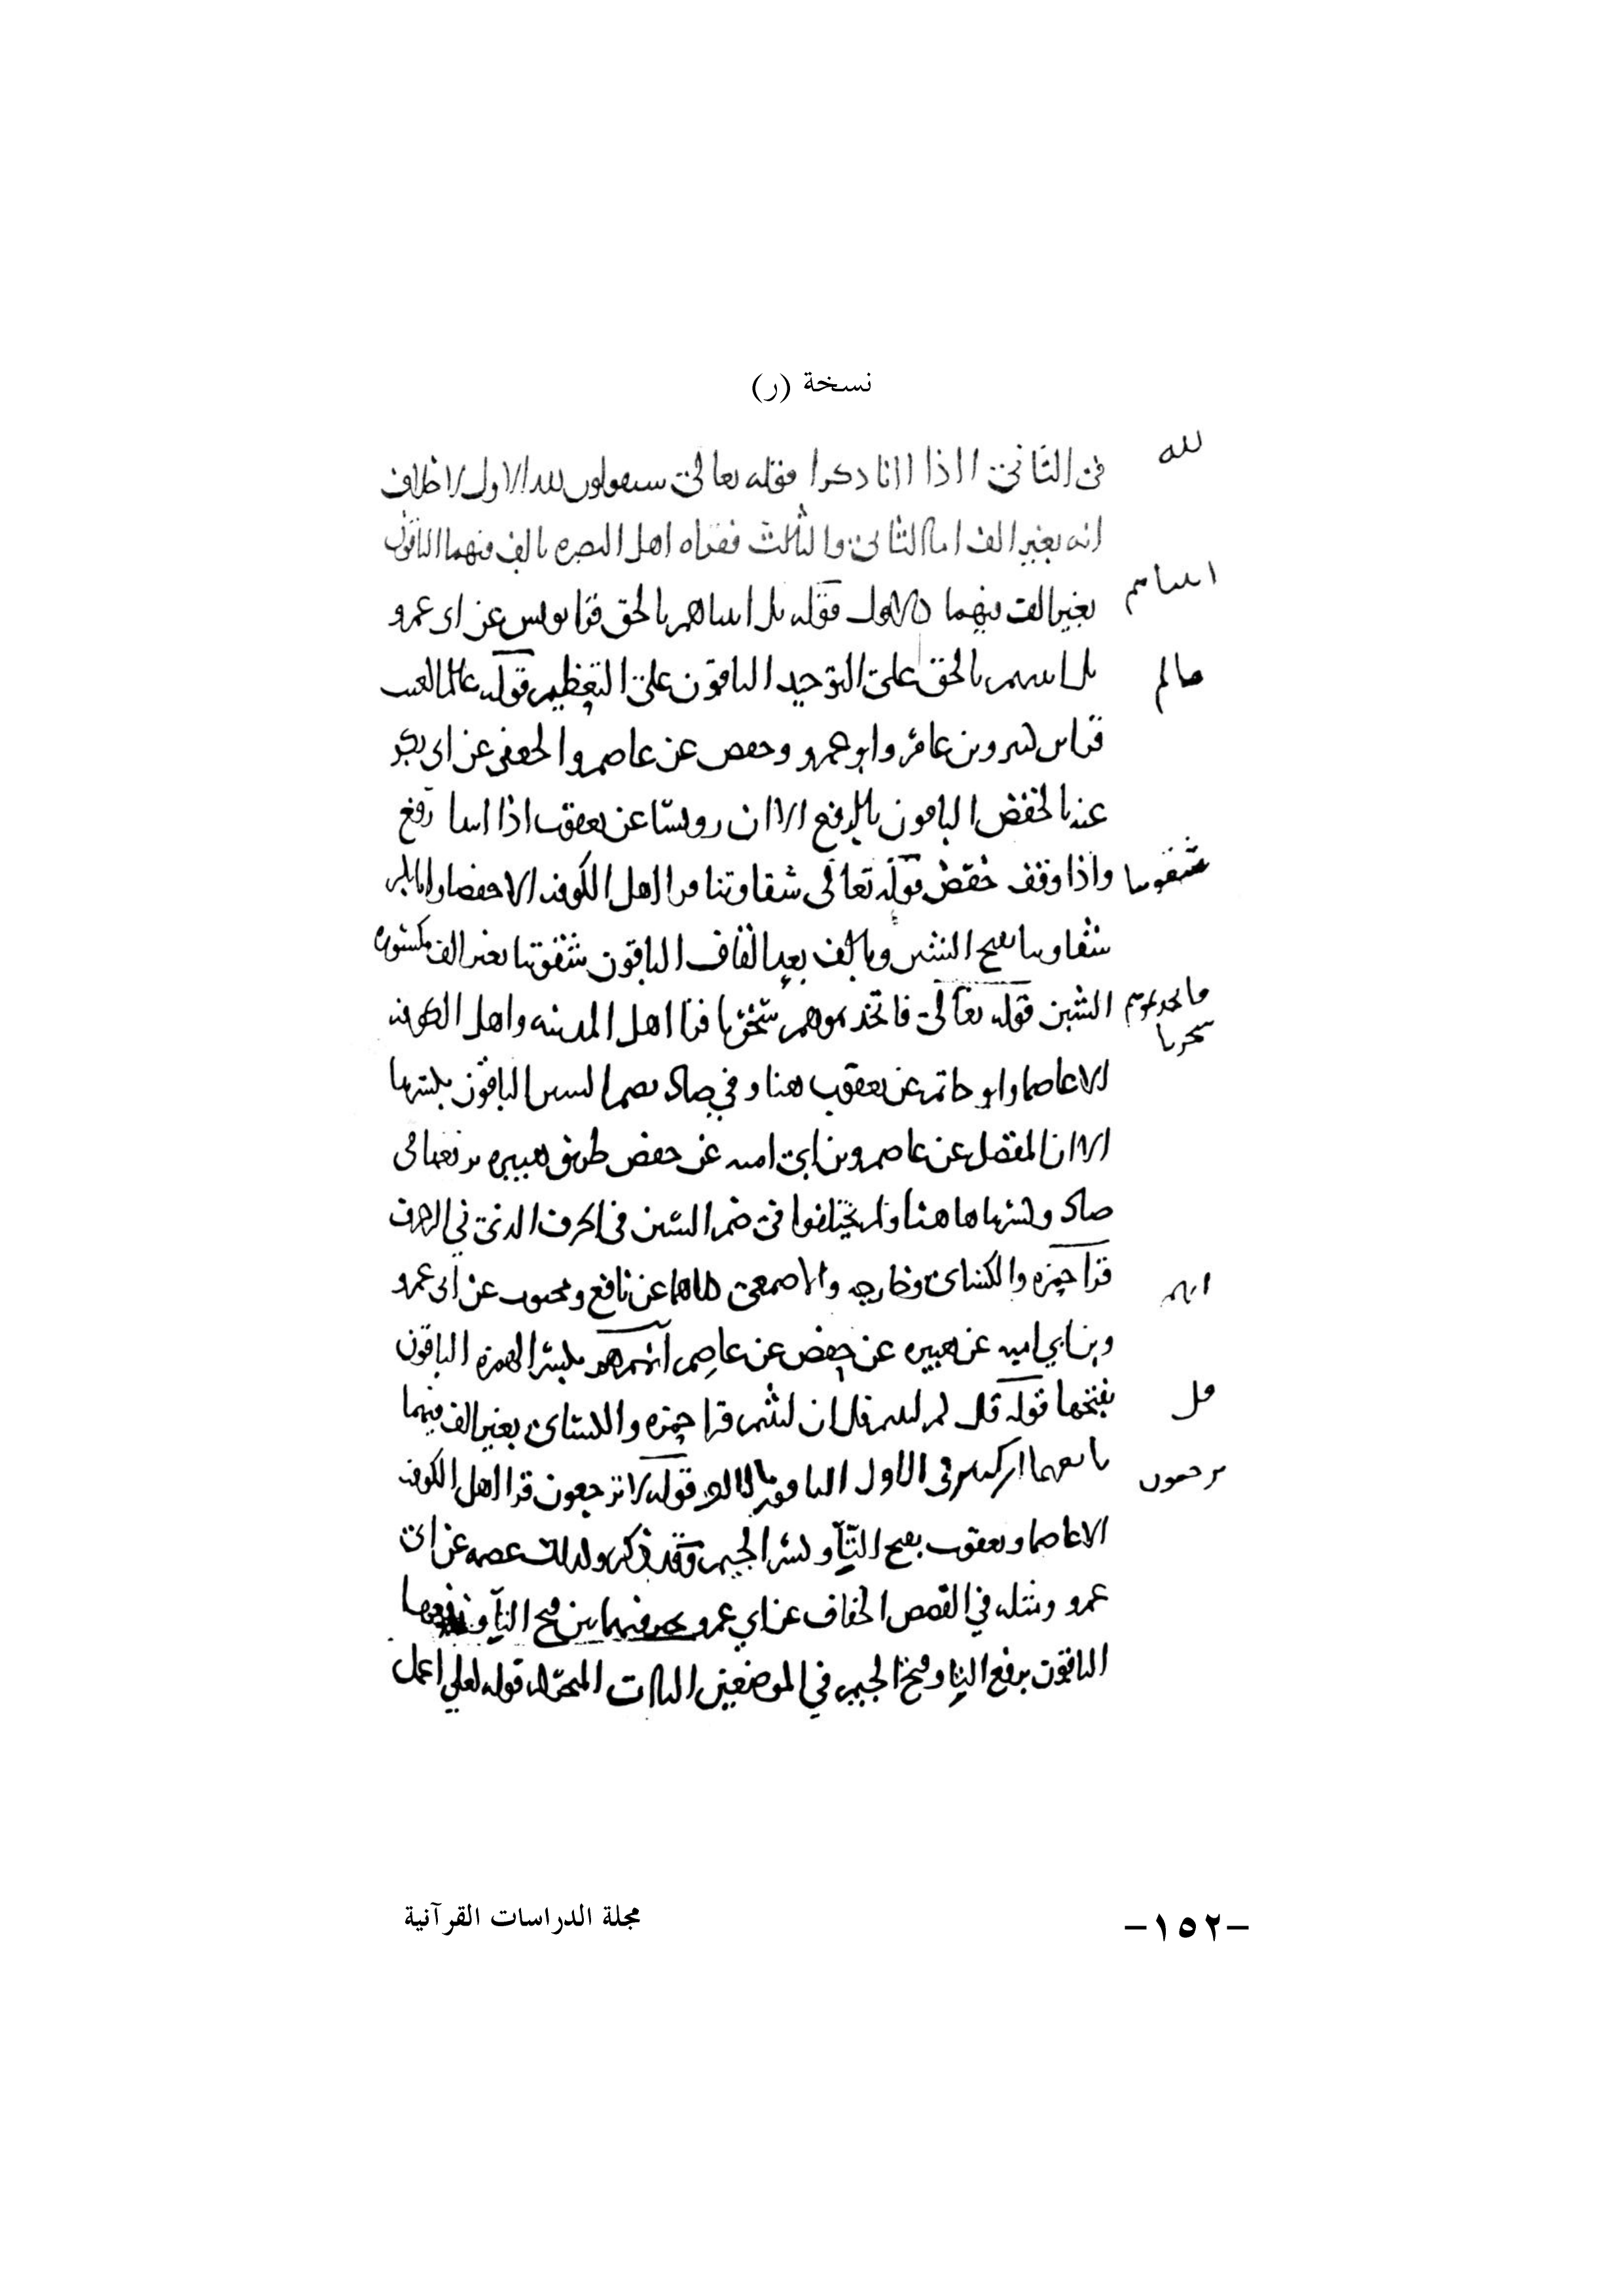 نسخة (ر)
لله
في الثاني ااذا اانا ذكرا قوله تعالى سيقولون لله الاول لا خلاف
انه بغير الف اما الثاني والثالث فقراه اهل البصره بالف فيهما الباقون
اتيناهم
بغير الف فيهما كالاول قوله بل اتيناهم بالحق قرا يونس عن ابي عمرو
عالم
بل اتيتهم بالحق على التوحيد الباقون على التعظيم قوله عالم الغيب
قرا بن كثير وبن عامر وابو عمرو وحفص عن عاصم والجعفي عن ابي بكر
عنه بالخفض الباقون بالرفع الا ان رويسا عن يعقوب اذا ابتدا رفع
شقوتنا
واذا وقف خفض قوله تعالى شقاوتنا قرا اهل الكوفه الا حفصا وابا بكر
شقاوتنا بفتح الشين وبالف بعد القاف الباقون شقوتنا بغير الف مكسوره
فاتخذتموهم
سخريا
الشين قوله تعالى فاتخذتموهم سخريا قرا اهل المدينه واهل الكوفه
الا عاصما وابو حاتم عن يعقوب هنا وفي صاد بضم السين الباقون بكسرها
الا ان المفضل عن عاصم وبن ابي اميه عن حفص طريق هبيره يرفعها في
صاد وكسرها هاهنا ولم يختلفوا في ضم السين في الحرف الذي في الزخرف
انهم
قرا حمزه والكسائي وخارجه والاصمعي كلاهما عن نافع ومحبوب عن ابي عمرو
وبن ابي اميه عن هبيره عن حفص عن عاصم انهم هم بكسر الهمزه الباقون
قل
بفتحها قوله قل كم لبثتم قل ان لبثتم قرا حمزه والكسائي بغير الف فيهما
ترجعون
تابعهما بن كثير في الاول الباقون قال قوله لا ترجعون قرا اهل الكوفه
الا عاصما ويعقوب بفتح التآ وكسر الجيم وقد ذكر وكذلك عصمه عن ابي
عمرو ومثله في القصص الخفاف عن ابي عمرو مخير فيهما بين فتح التآ و رفعها
الباقون برفع التا وفتح الجيم في الموضعين الياات المتحركه قوله لعلي اعمل
مجلة الدراسات القرآنية
-١٥٢-